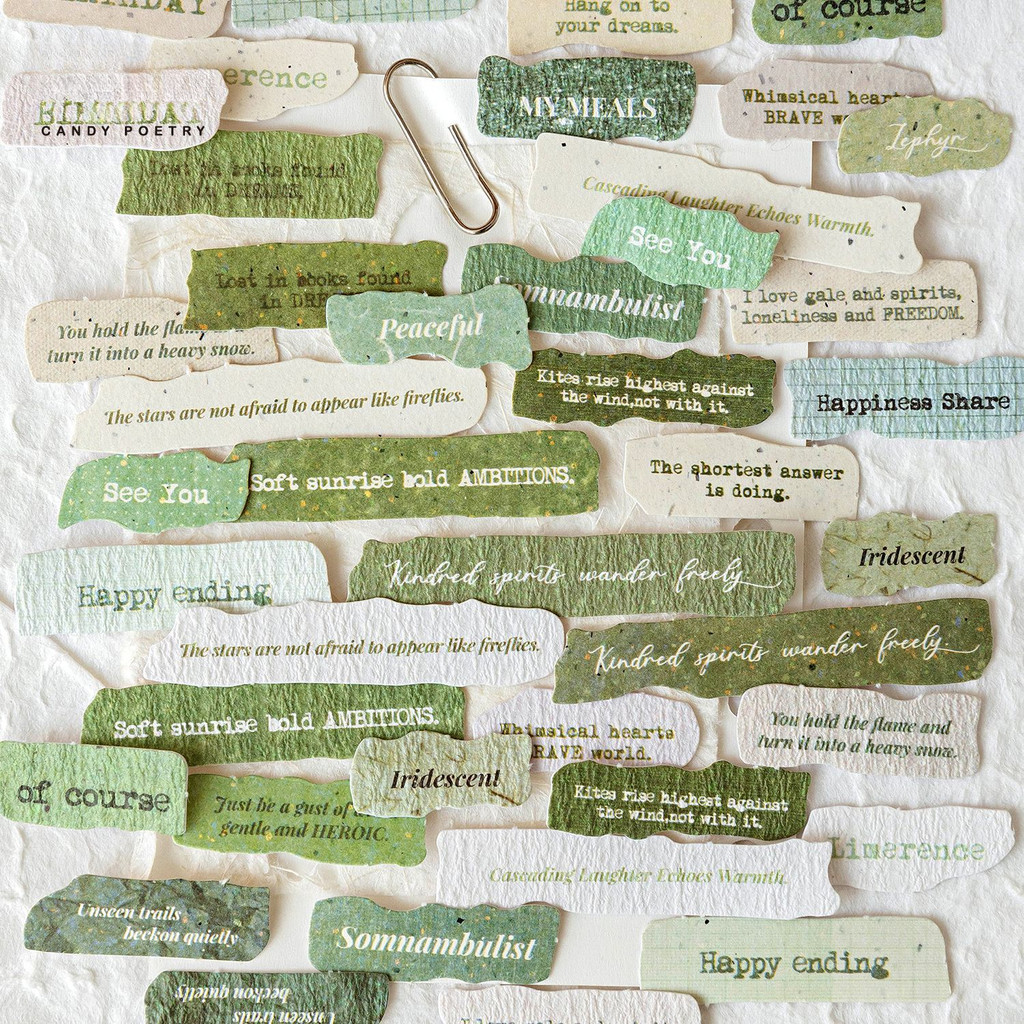 BIRTHDAY
Hang on to
your dreams.
of course
erence
BIRTHDAY
CANDY POETRY
MY MEALS
Whimsical hearts
BRAVE wo
Zephyr
Lost in books found
in DREAMS.
Cascading Laughter Echoes Warmth.
See You
Lost in books found
in DRE
Somnambulist
I love gale and spirits,
loneliness and FREEDOM.
You hold the flam
turn it into a heavy snow.
Peaceful
Kites rise highest against
the wind,not with it.
Happiness Share
The stars are not afraid to appear like fireflies.
See You
Soft sunrise bold AMBITIONS.
The shortest answer
is doing.
Iridescent
Happy ending
Kindred spirits wander freely
The stars are not afraid to appear like fireflies.
Kindred spirits wander freely
Soft sunrise bold AMBITIONS.
Whimsical hearts
BRAVE world.
You hold the flame and
turn it into a heavy snow.
of course
Just be a gust of
gentle and HEROIC.
Iridescent
Kites rise highest against
the wind,not with it.
Limerence
Cascading Laughter Echoes Warmth.
Unseen trails
beckon quietly
Somnambulist
Happy ending
Unseen trails
beckon quietly